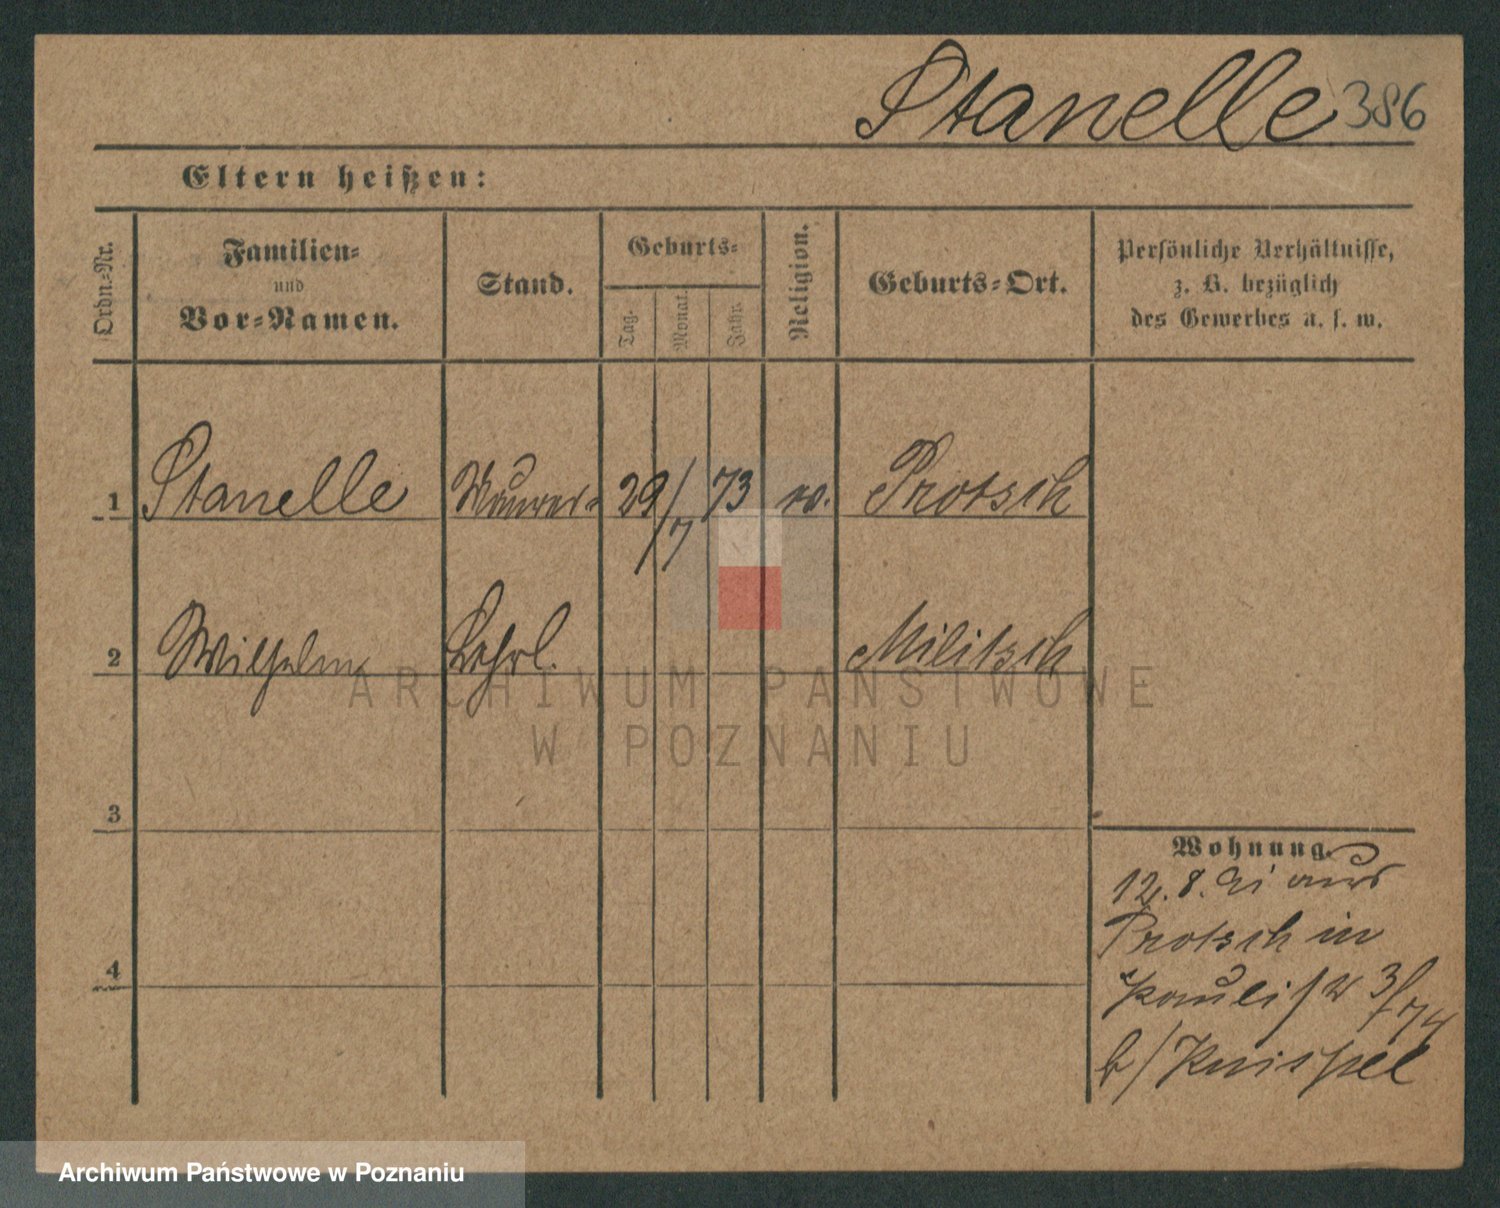 Stanelle 386
Eltern heißen:
Ordn.-Nr.
Familien-
und
Vor-Namen.
Stand.
Geburts-
Tag.
Monat.
Jahr.
Religion.
Geburts-Ort.
Persönliche Verhältnisse,
z. B. bezüglich
des Gewerbes u. s. w.
1 Stanelle Maurer- 29/7 73 ev. Protsch
2 Wilhelm Lehrl. Militsch
3
4
Wohnung.
12. 8. aus
Protsch in
3/74
b/
ARCHIWUM PAŃSTWOWE
W POZNANIU
Archiwum Państwowe w Poznaniu